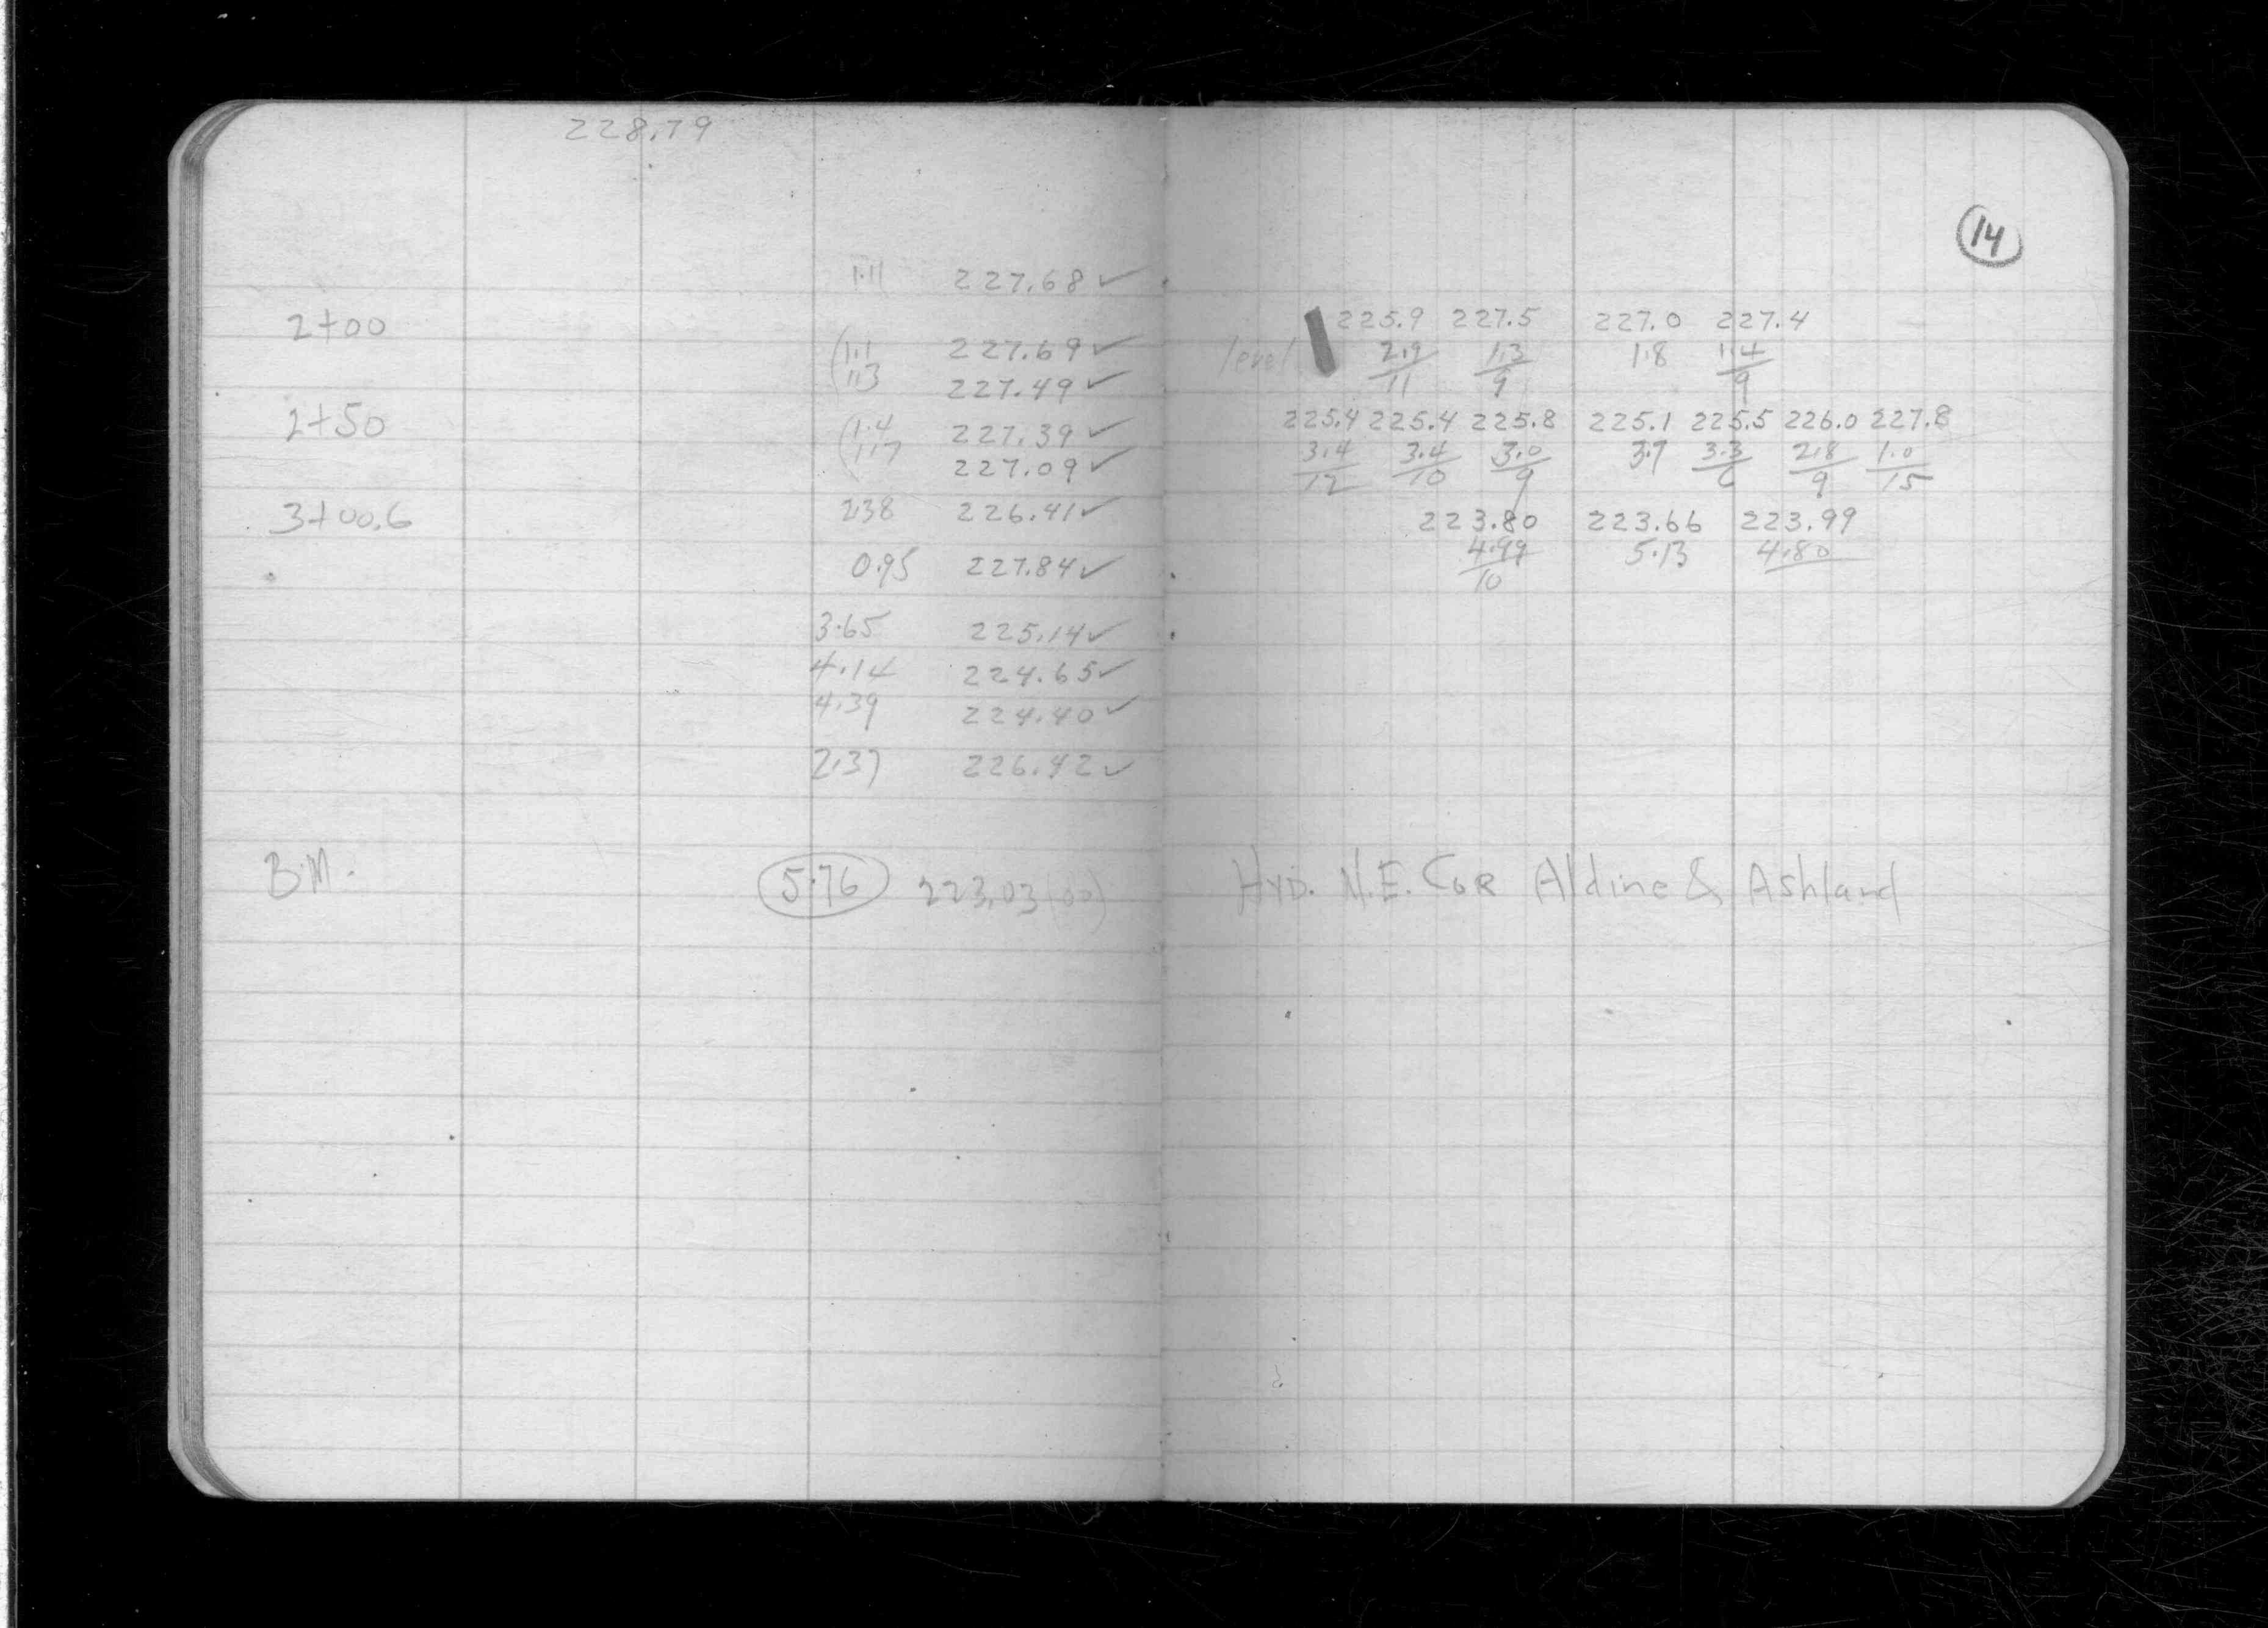 228.79
14
1.11 227.68 ✓
2+00
225.9 227.5 227.0 227.4
(1.1 227.69 ✓
level 2.9/11 1.3/9 1.8 1.4/9
1.3 227.49 ✓
2+50
225.4 225.4 225.8 225.1 225.5 226.0 227.8
(1.4 227.39 ✓
3.4/12 3.4/10 3.0/9 3.7 3.3/6 2.8/9 1.0/15
1.7 227.09 ✓
3+00.6 2.38 226.41 ✓
223.80 223.66 223.99
4.99/10 5.13 4.80
0.95 227.84 ✓
3.65 225.14 ✓
4.14 224.65 ✓
4.39 224.40 ✓
2.37 226.42 ✓
B.M. 5.76 223.03 (00) HYD. N.E. COR Aldine & Ashland